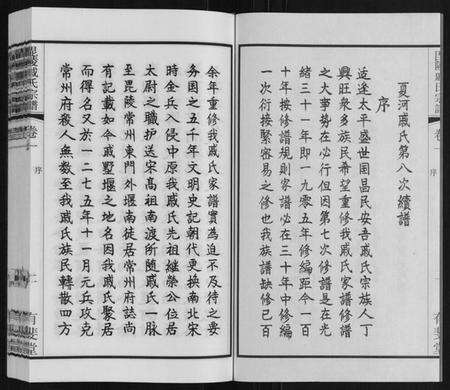 夏河戚氏第八次續譜
序
近逢太平盛世國昌民安吾戚氏宗族人丁
興旺衆多族民希望重修我戚氏家譜修譜
之大事勢在必行但因第七次修譜是在光
緒三十一年即一九零五年修編距今一百
十年按修譜規則家譜必在三十年中修編
一次衍接緊容易之修也我族譜缺修已百
余年重修我戚氏家譜實為迫不及待之要
务因之五千年文明史記朝代更换南北宋
時金兵入侵中原我戚氏先祖継榮公位居
太尉之職护送宋高祖南渡所随戚氏一脉
至毘陵常州東門外堰南徒居常州府誌尚
有記載如今戚墅堰之地名因我戚氏聚居
而得名又於一二七五年十一月元兵攻克
常州府殺人無数至我戚氏族民轉散四方
毘陵戚氏宗譜
卷一
序
二
有斐堂
卷一
序
有斐堂